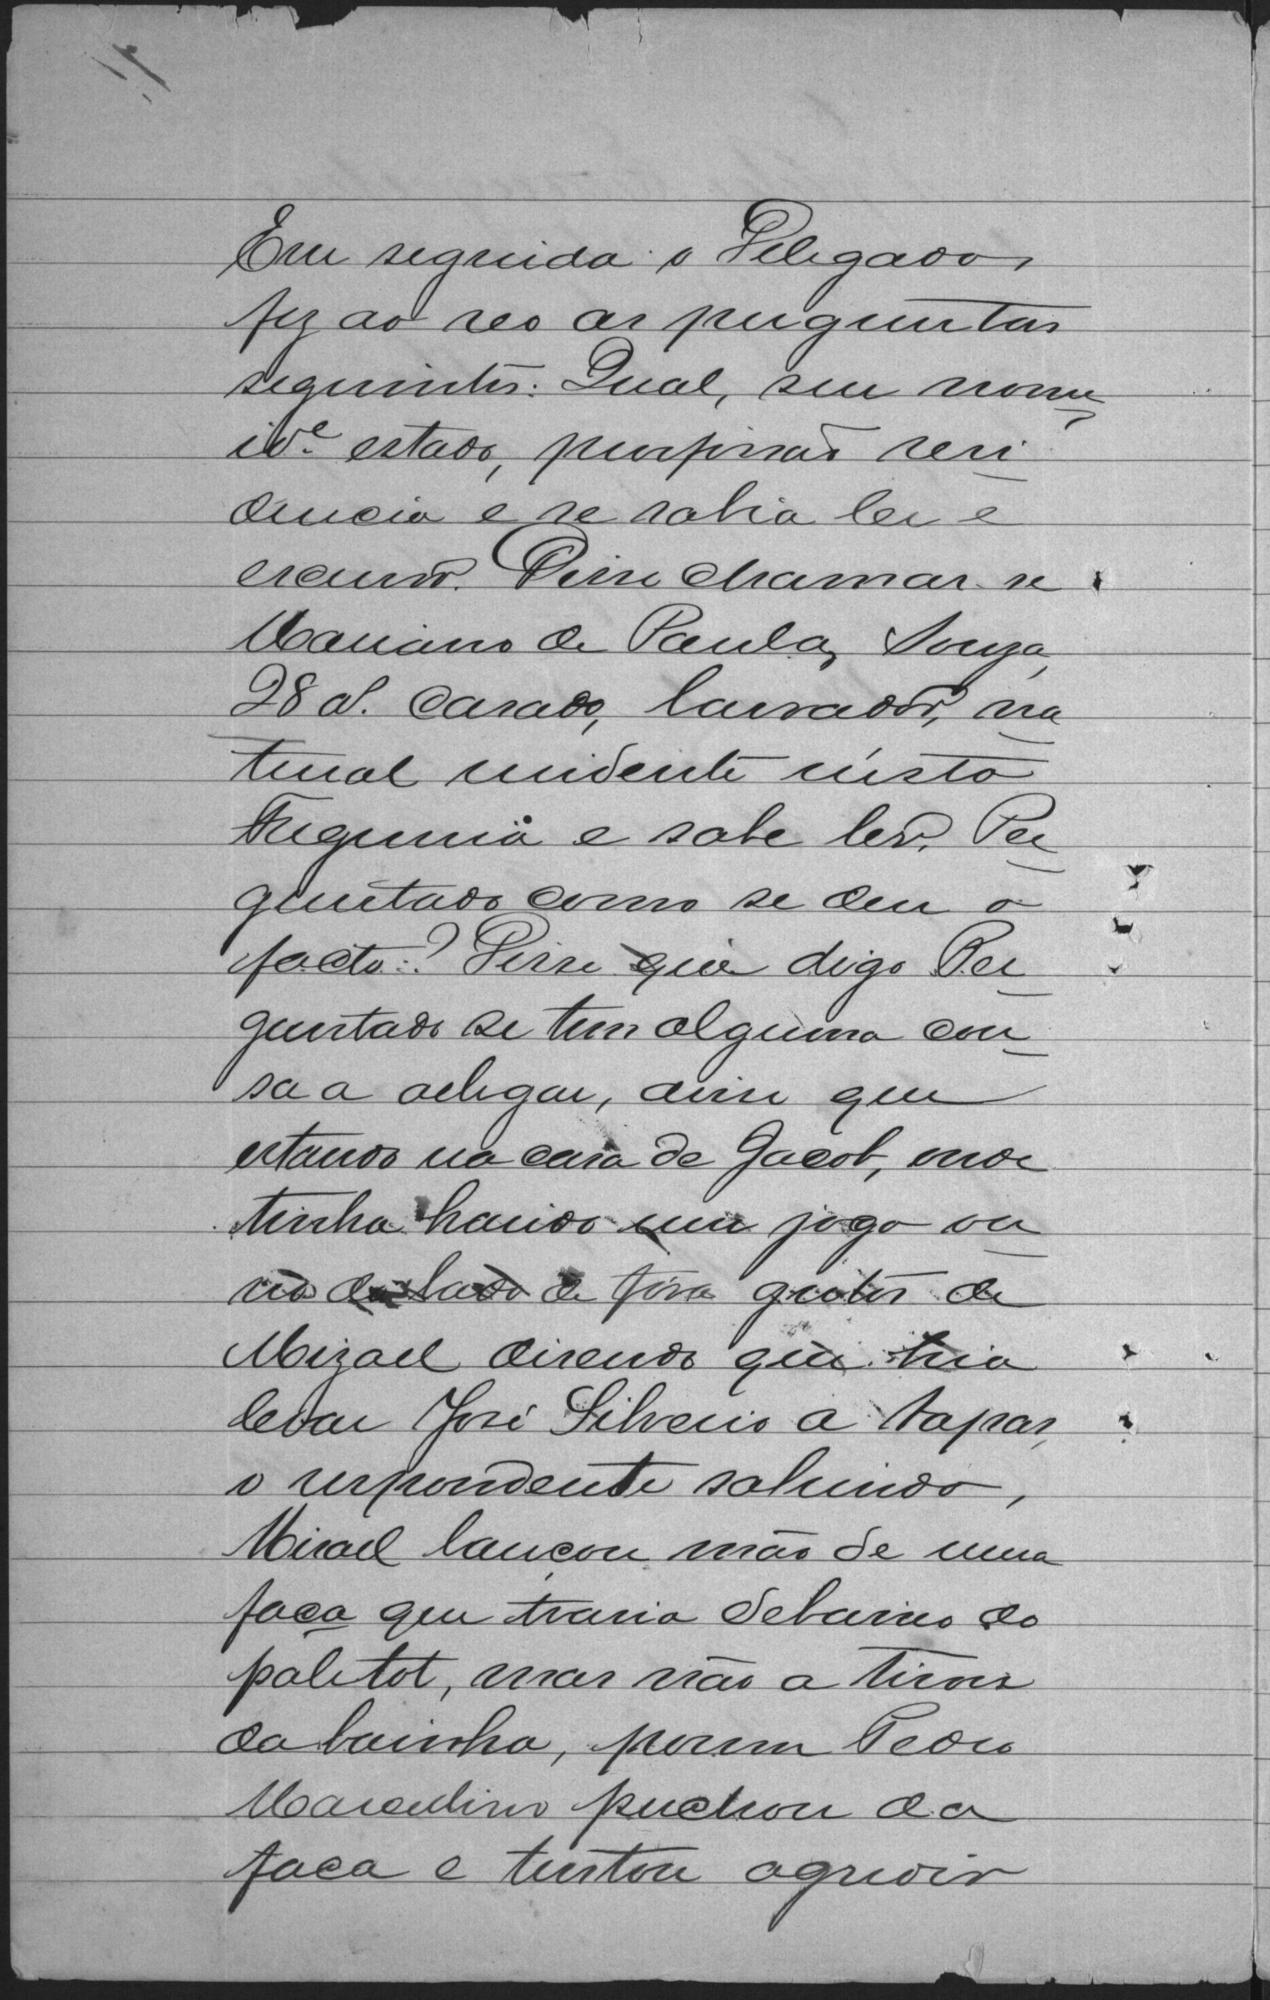 Em seguida o Delegado
fez ao reo as perguntas
seguintes: Qual, seu nome,
id.e estado, profissão resi
dencia e se sabia ler e
escrever. Disse chamar-se
Mariano de Paula Souza,
28 a. casado, lavrador, na
tural residente nésta
Freguesia e sabe ler. Per
guntado como se deu o
facto:? Disse que digo Per
guntado se tem alguma cou
sa a allegar, disse que
estando na casa de Jacob, onde
tinha havido um jogo ou
vio do lado de fóra gritos de
Mizael disendo que hia
levar José Silverio a tapas,
o respondente sahindo,
Misael lançou mão de uma
faca que trasia debaixo do
paletot, mas não a tirou
da bainha, porem Pedro
Marcelino puchou da
faca e tentou agredir